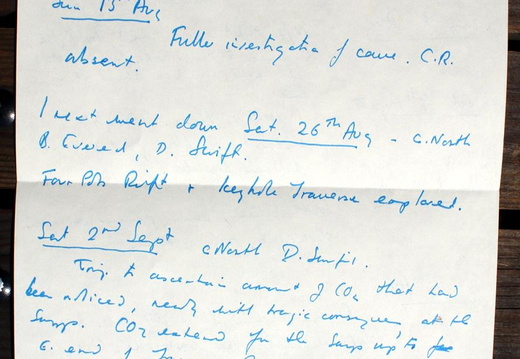 Sun 13 Aug
Fuller investigation of cave. C.R.
absent.
I next went down Sat. 26th Aug - C. North
B. Evered, D. Swift.
Four Pots Rift + Keyhole Traverse explored.
Sat 2nd Sept C North D. Swift.
Trip to ascertain amount of CO2 that had
been noticed, nearly with tragic consequences at the
Sump. CO2 extend from the Sump up to
E. end of